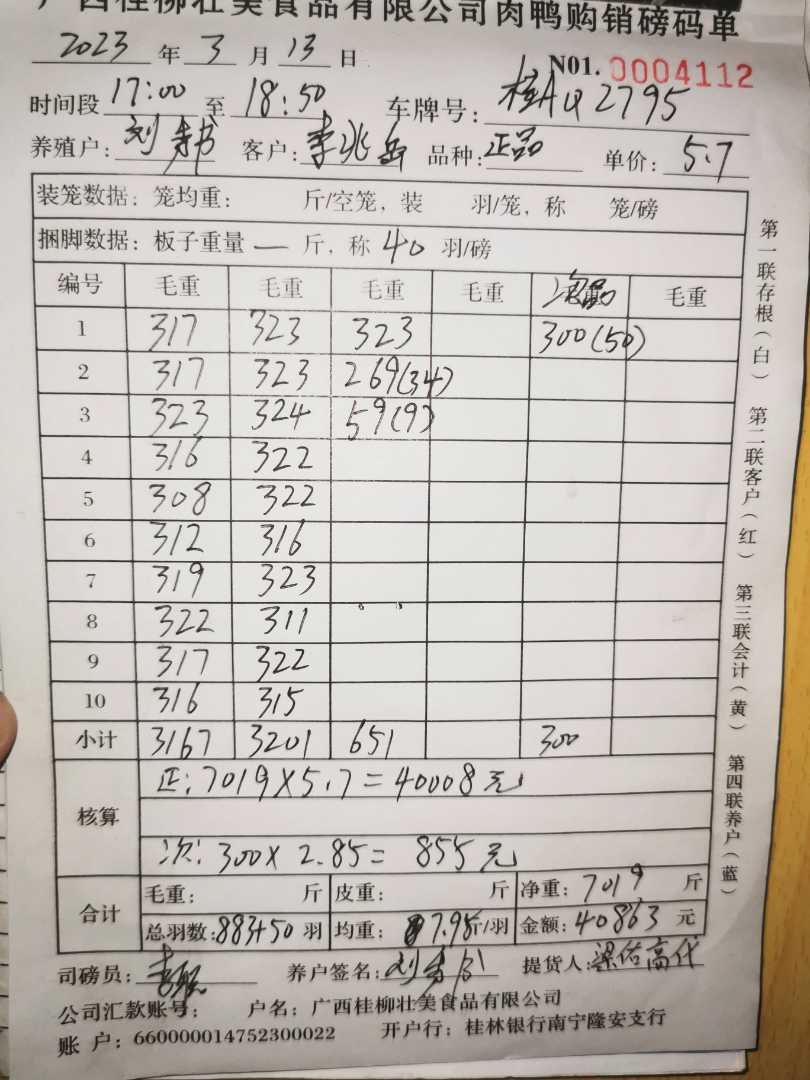 广西桂柳壮美食品有限公司肉鸭购销磅码单
2023 年 3 月 13 日
N01. 0004112
时间段 17:00 至 18:50 车牌号: 桂AQ2795
养殖户: 刘 客户: 李兆岳 品种: 正品 单价: 5.7
装笼数据: 笼均重: 斤/空笼, 装 羽/笼, 称 笼/磅
捆脚数据: 板子重量 — 斤, 称 40 羽/磅
编号 毛重 毛重 毛重 毛重 次品 毛重
1 317 323 323 300(50)
2 317 323 269(34)
3 323 324 59(9)
4 316 322
5 308 322
6 312 316
7 319 323
8 322 311
9 317 322
10 316 315
小计 3167 3201 651 300
核算
正: 7019×5.7=40008元
次: 300×2.85= 855元
合计
毛重: 斤 皮重: 斤 净重: 7019 斤
总羽数: 883+50 羽 均重: 7.95 斤/羽 金额: 40863 元
司磅员: 养户签名: 刘 提货人: 梁佑高代
公司汇款账号: 户名: 广西桂柳壮美食品有限公司
账 户: 660000014752300022 开户行: 桂林银行南宁隆安支行
第一联存根(白) 第二联客户(红) 第三联会计(黄) 第四联养户(蓝)